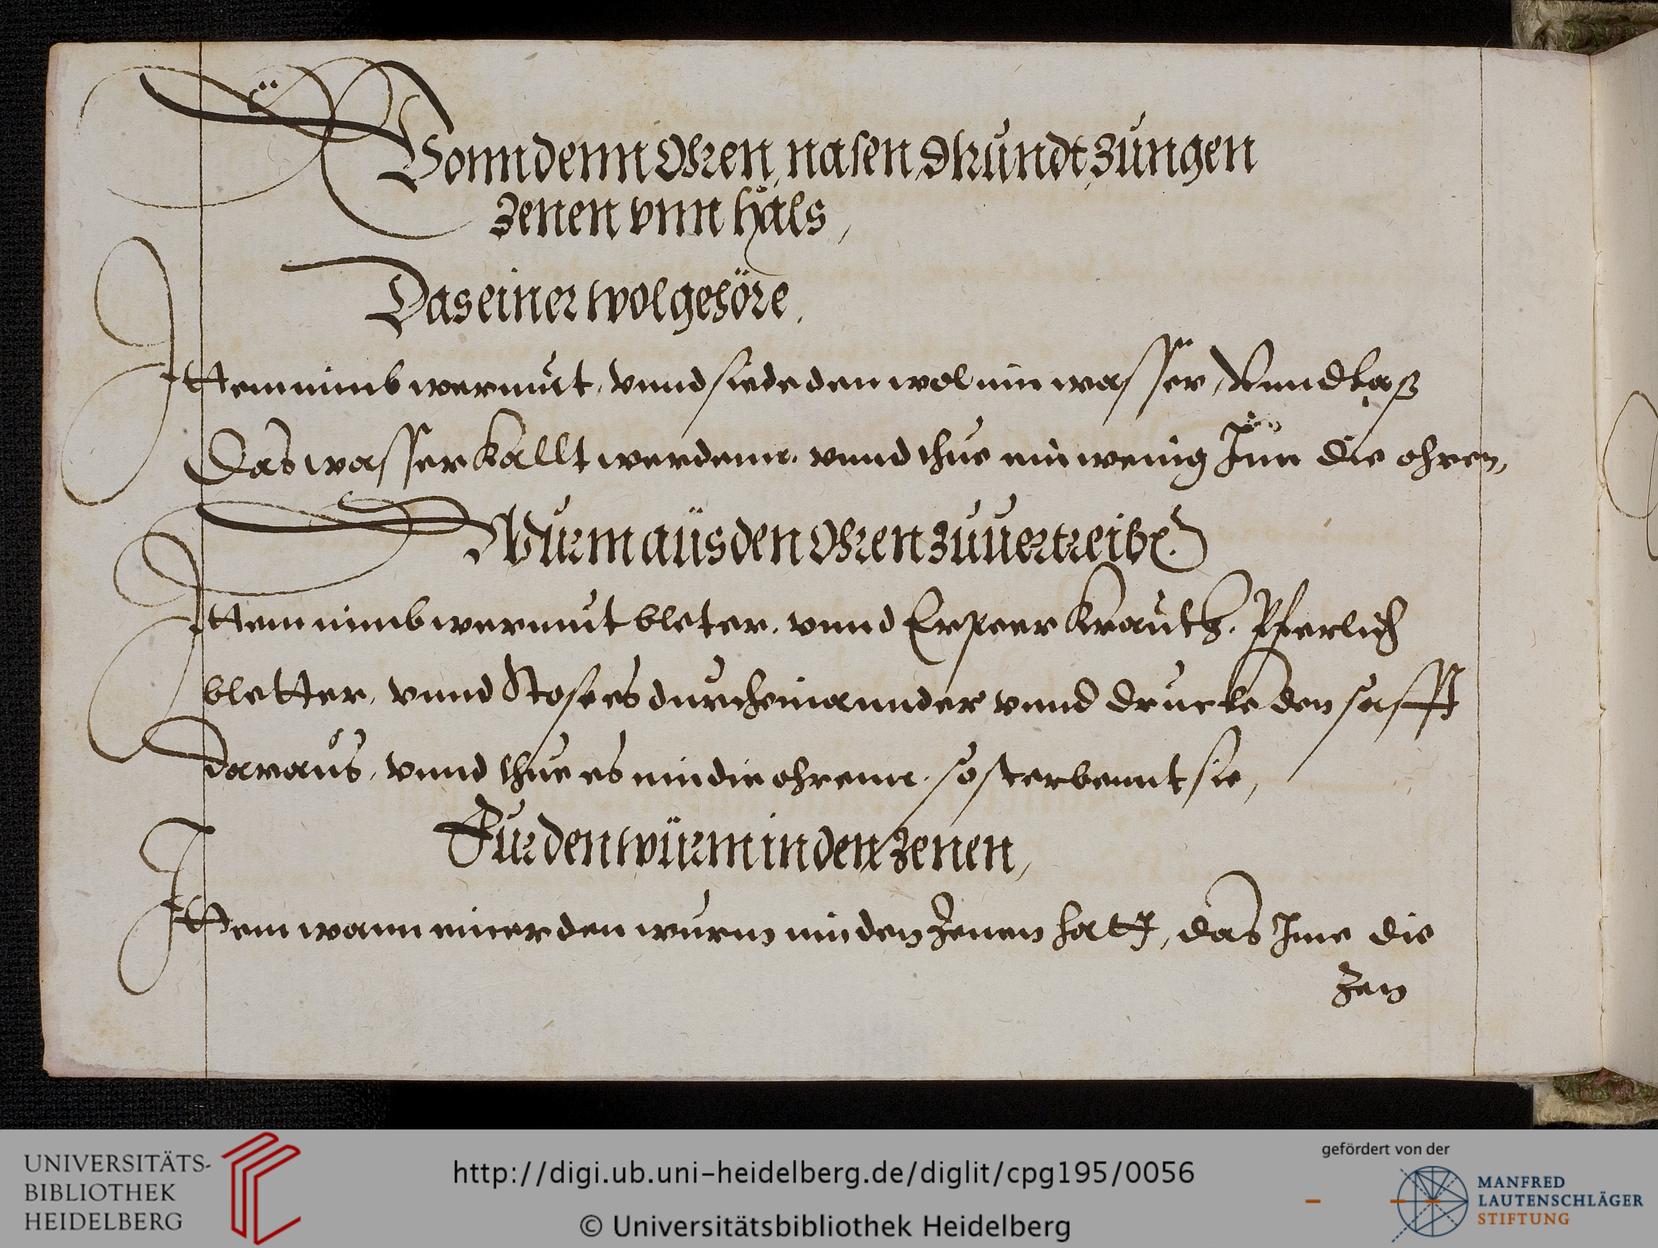 Vonn denn Ohren, nasen Mundt, zungen
zenen vnn hals,
Das einer wol gehöre.
Ittem nimb wermut, vnnd siede den wol inn wasser, Vnnd laß
Das wasser kallt werdenn, vnnd thue ein wenig Inn die ohren,
Wurm aus den Ohren zuuertreiben
Ittem nimb wermut bleter, vnnd krauth, Pferlich
bletter, vnnd Stose es durcheinannder vnnd drucke den safft
daraus, vnnd thue es inn die ohrenn, so sterbennt sie,
Fur den würm in den zenen,
Ittem wann einer den wurm inn den Zenen hatt, das Ime die
Zen
UNIVERSITÄTS-
BIBLIOTHEK
HEIDELBERG
http://digi.ub.uni-heidelberg.de/diglit/cpg195/0056
© Universitätsbibliothek Heidelberg
gefördert von der
MANFRED
LAUTENSCHLÄGER
STIFTUNG